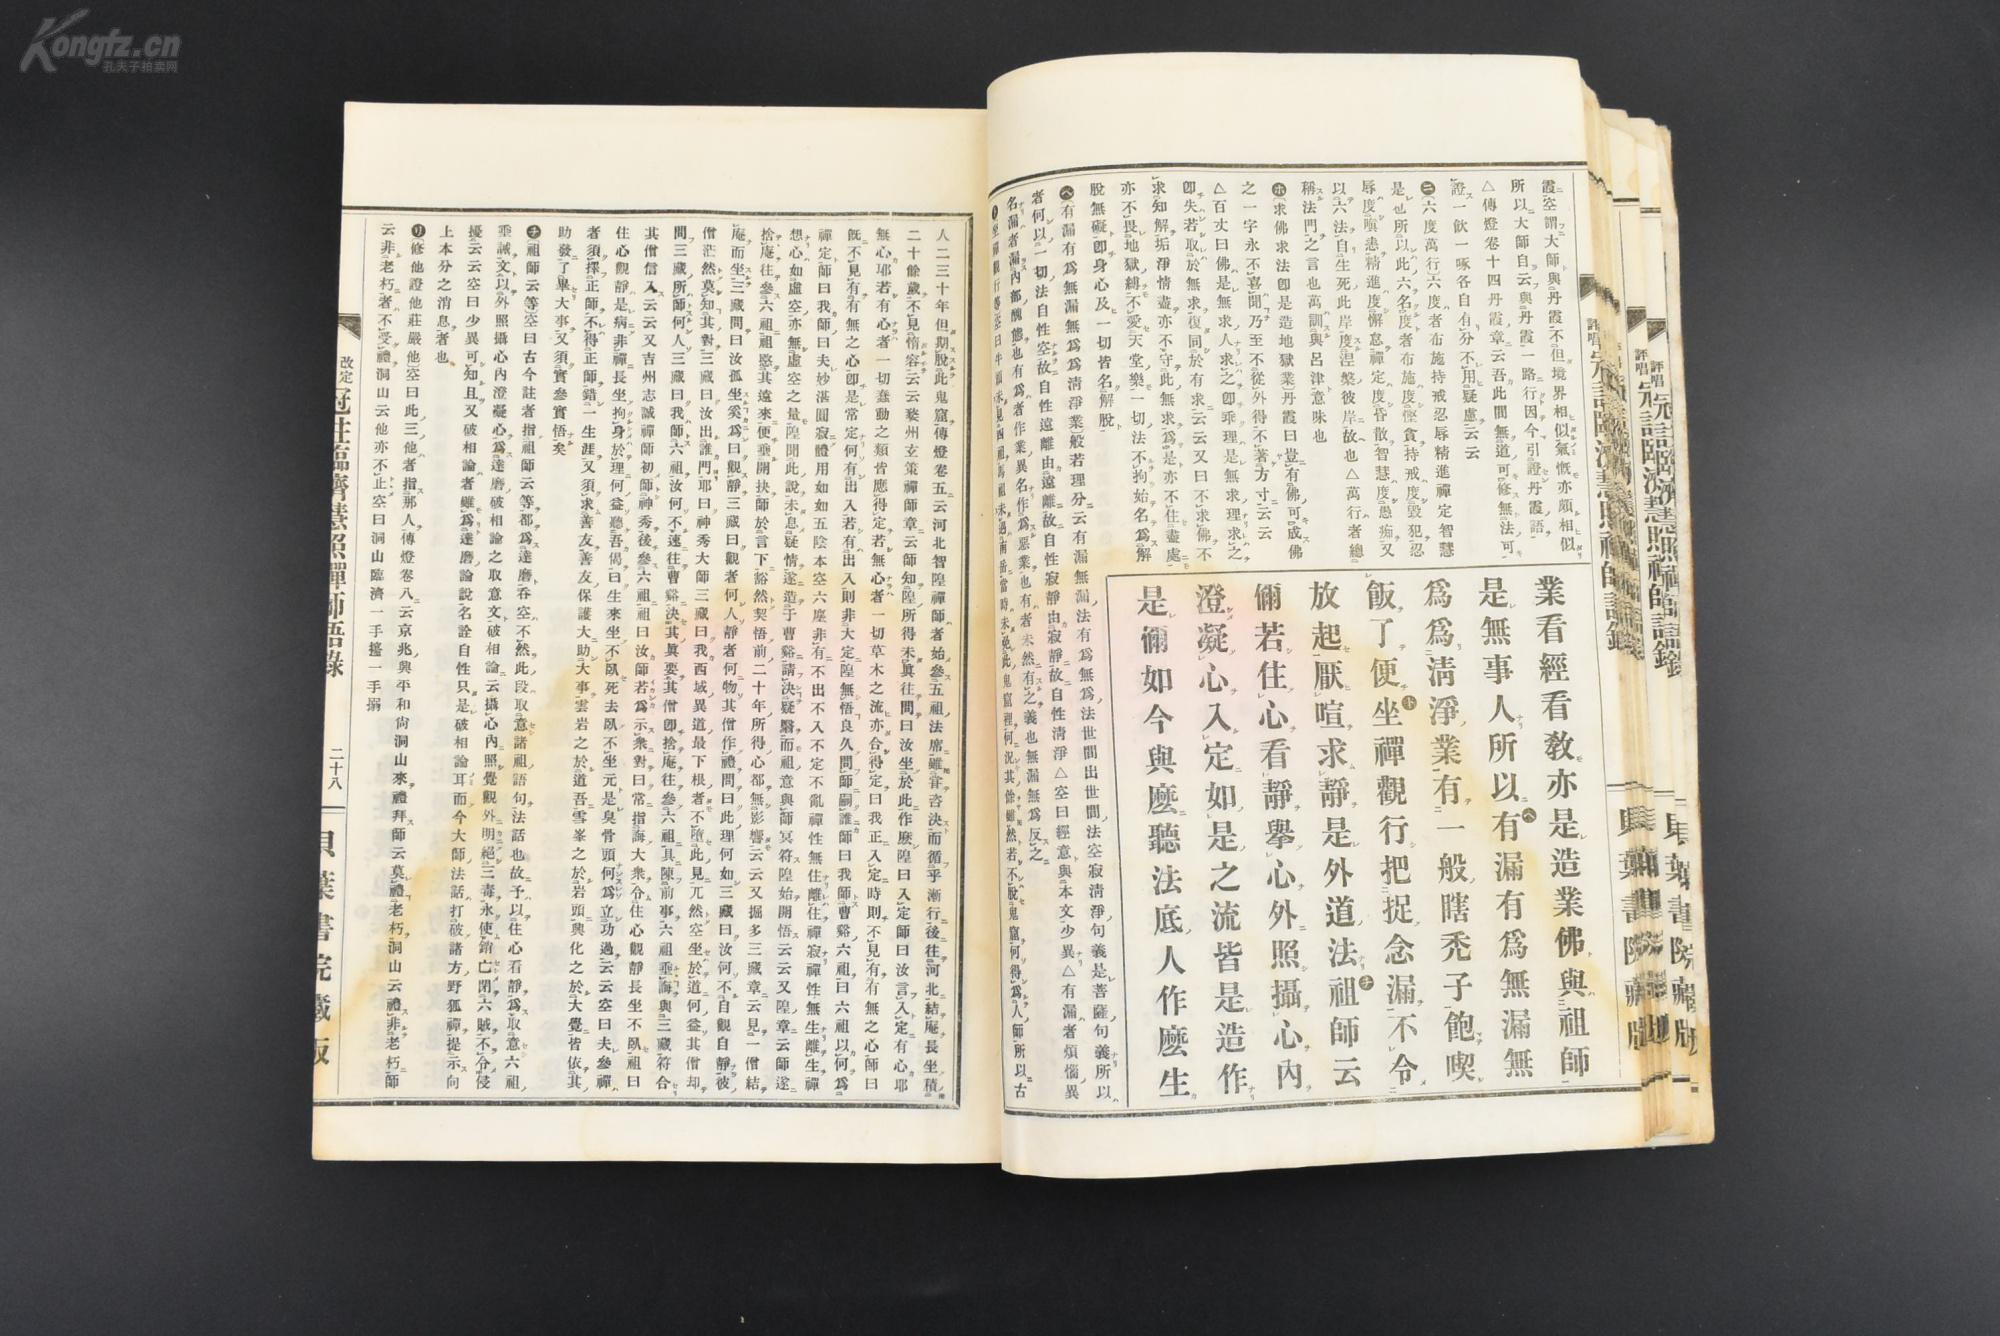 Kongfz.cn
孔夫子拍卖网
霞空謂大師與丹霞不但境界相似氣慨亦頗相似
所以大師自云與丹霞一路行因今引證丹霞語
△傳燈卷十四丹霞章云吾此間無道可修無法可
證一飲一啄各自有分不用疑慮云云
㊁六度萬行六度者布施持戒忍辱精進禪定智慧
是也所以此六名度者布施度慳貪持戒度毀犯忍
辱度瞋恚精進度懈怠禪定度昏散智慧度愚痴又
以六法自生死此岸度涅槃彼岸故也△萬行者總
稱法門之言也萬訓與呂津意味也
ホ求佛求法卽是造地獄業丹霞曰豈有佛可成佛
之一字永不喜聞乃至不從外得不著方寸云云
△百丈曰佛是無求人求之卽乖理是無求理求之
卽失若取於無求復同於有求云云又曰不求佛不
求知解垢淨情盡亦不守此無求爲是亦不住盡處
亦不畏地獄縛不愛天堂樂一切法不拘始名爲解
脫無礙卽身心及一切皆名解脫
ヘ有漏有爲無漏無爲爲清淨業般若理分云有漏無漏法有爲無爲法世間出世間法空寂清淨句義是菩薩句義所以
者何以一切法自性空故自性遠離由遠離故自性寂靜由寂靜故自性清淨△空曰經意與本文少異△有漏者煩惱異
名漏者漏內部醜態也有爲者作業異名作爲惡業也有者未然有之義也無漏無爲反之
ト坐禪觀行等空曰牛頭未見四祖馬祖未遇南岳當時未免此鬼窟裡何況其餘雖然若不脫鬼窟何得爲人師所以古
業看經看敎亦是造業佛與祖師
是無事人所以有漏有爲無漏無
爲爲淸淨業有一般瞎禿子飽喫
飯了便坐禪觀行把捉念漏不令
放起厭喧求靜是外道法祖師云
儞若住心看靜擧心外照攝心內
澄凝心入定如是之流皆是造作
是儞如今與麽聽法底人作麽生
人二三十年但期脫此鬼窟傳燈卷五云河北智隍禪師者始參五祖法席雖甞咨決而循乎漸行後往河北結庵長坐積
二十餘歲不見惰容云云婺州玄策禪師章云師知隍所得未眞往問曰汝坐於此作麽隍曰入定師曰汝言入定有心耶
無心耶若有心者一切蠢動之類皆應得定若無心者一切草木之流亦合得定曰我正入定時則不見有有無之心師曰
旣不見有有無之心卽是常定何有出入若有出入則非大定隍無悟良久問師嗣誰師曰我師曹谿六祖曰六祖以何爲
禪定師曰我師曰夫妙湛圓寂體用如如五陰本空六塵非有不出不入不定不亂禪性無住離住禪寂禪性無生離生禪
想心如虛空亦無虛空之量隍聞此說未息疑情遂造于曹谿請決疑翳而祖意與師冥符隍始開悟云云又隍章云師遂
捨庵往參六祖祖愍其遠來便垂開抉師於言下豁然契悟前二十年所得心都無影響云云又掘多三藏章云見一僧結
庵而坐三藏問曰汝孤坐奚爲曰觀靜三藏曰觀者何人靜者何物其僧作禮問曰此理何如三藏曰汝何不自觀自靜彼
僧茫然莫知其對三藏曰汝出誰門耶曰神秀大師三藏曰我西域異道最下根者不墮此見兀然空坐於道何益其僧却
問三藏所師何人三藏曰我師六祖汝何不速往曹谿決其眞要其僧卽捨庵往參六祖具陳前事六祖垂誨與三藏符合
其僧信入云云又吉州志誠禪師初師神秀後參六祖祖曰汝師若爲示衆對曰常指誨大衆令住心觀靜長坐不臥祖曰
住心觀靜是病非禪長坐拘身於理何益聽吾偈曰生來坐不臥死去臥不坐元是臭骨頭何爲立功過云云空曰夫參禪
者須擇正師不得正師錯一生涯又須求善友善友保護大助大事雲岩之於道吾雪峯之於岩頭興化之於大覺皆依其
助發了畢大事又須實參實悟矣
チ祖師云等空曰古今註者指祖師云等都爲達磨吞空不然此段取意諸祖語句法話也故予以住心看靜爲取意六祖
垂誡文以外照攝心內澄凝心爲達磨破相論之取意文破相論云攝心內照覺觀外明絕三毒永使銷亡閉六賊不令侵
擾云云空曰少異可知且又破相論者雖爲達磨論說名詮自性只是破相論耳而今大師法話打破諸方野狐禪提示向
上本分之消息者也
リ修他證他莊嚴他空曰此三他者指那人傳燈卷八云京兆興平和尙洞山來禮拜師云莫禮老朽洞山云禮非老朽師
云非老朽者不受禮洞山云他亦不止空曰洞山臨濟一手擡一手搦
改定冠註臨濟慧照禪師語錄
二十八
貝葉書院藏版
評唱
評唱